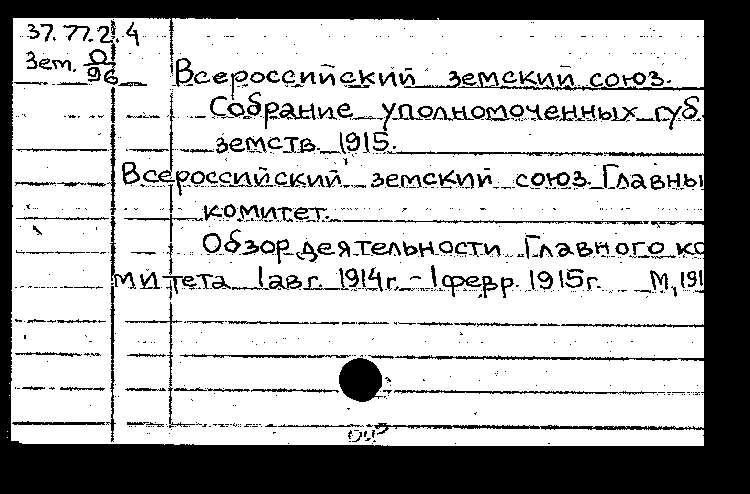 37.77.2.4
Зет. О
96
Всероссийский земский союз.
Собрание уполномоченных губ.
земств. 1915.
Всероссийский земский союз. Главны
комитет.
Обзор деятельности Главного ко
митета 1 авг. 1914г. - 1 февр. 1915г. М, 191